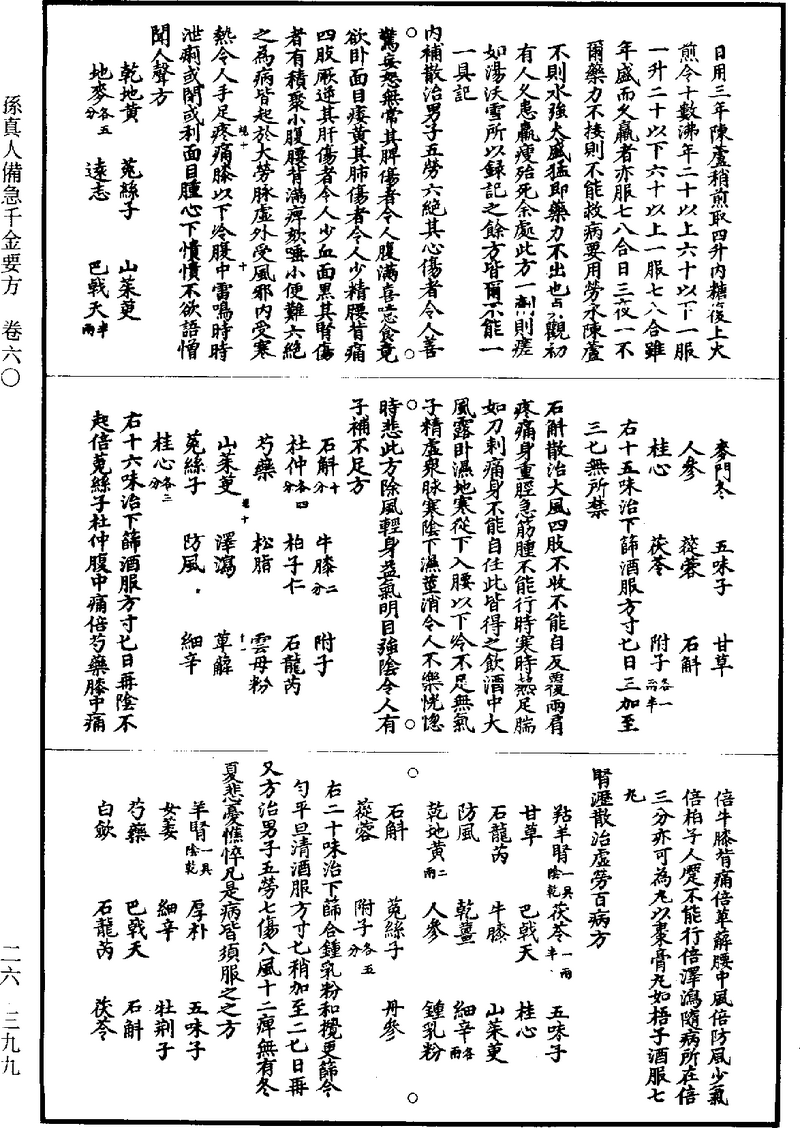 日用三年陳蘆稍煎取四升内糖復上火
煎令十數沸年二十以上六十以下一服
一升二十以下六十以上一服七八合雖
年盛而久羸者亦服七八合日三夜一不
爾藥力不接則不能救病要用勞水陳蘆
不則水強火盛猛即藥力不出也貞觀初
有人久患羸瘦殆死余處此方一劑則瘥
如湯沃雪所以錄記之餘方皆爾不能一
一具記
内補散治男子五勞六絕其心傷者令人善
驚妄怒無常其脾傷者令人腹滿喜噫食竟
欲卧面目痿黃其肺傷者令人少精腰背痛
四肢厥逆其肝傷者令人少血面黑其腎傷
者有積聚小腹腰背滿痺欬唾小便難六絕
之為病皆起於大勞脉虛外受風邪内受寒
熱令人手足疼痛膝以下冷腹中雷鳴時時
泄痢或閉或利面目腫心下憒憒不欲語憎
聞人聲方
乾地黃 菟絲子 山茱萸
地麥各五分 遠志 巴戟天半兩
麥門冬 五味子 甘草
人參 蓯蓉 石斛
桂心 茯苓 附子各一兩半
右十五味治下篩酒服方寸匕日三加至
三匕無所禁
石斛散治大風四肢不收不能自反覆兩肩
疼痛身重脛急筋腫不能行時寒時熱足腨
如刀刺痛身不能自任此皆得之飲酒中大
風露卧濕地寒從下入腰以下冷不足無氣
子精虛衆脉寒陰下濕莖消令人不樂恍惚
時悲此方除風輕身益氣明目強陰令人有
子補不足方
石斛十分 牛膝二分 附子
杜仲各四分 柏子仁 石龍芮
芍藥 松脂 雲母粉
山茱萸 澤瀉 萆薢
菟絲子 防風 細辛
桂心各三分
右十六味治下篩酒服方寸匕日再陰不
起倍菟絲子杜仲腹中痛倍芍藥膝中痛
倍牛膝背痛倍萆薢腰中風倍防風少氣
倍柏子人蹷不能行倍澤瀉隨病所在倍
三分亦可為丸以棗膏丸如梧子酒服七
丸
腎瀝散治虛勞百病方
羖羊腎一具陰乾 茯苓一兩半 五味子
甘草 巴戟天 桂心
石龍芮 牛膝 山茱萸
防風 乾薑 細辛各一兩
乾地黃二兩 人參 鍾乳粉
石斛 菟絲子 丹參
蓯蓉 附子各五分
右二十味治下篩合鍾乳粉和攪更篩令
勻平旦清酒服方寸匕稍加至二匕日再
又方治男子五勞七傷八風十二痺無有冬
夏悲憂憔悴凡是病皆須服之之方
羊腎一具陰乾 厚朴 五味子
女萎 細辛 牡荊子
芍藥 巴戟天 石斛
白歛 石龍芮 茯苓
孫真人備急千金要方 卷六〇
二六 三九九